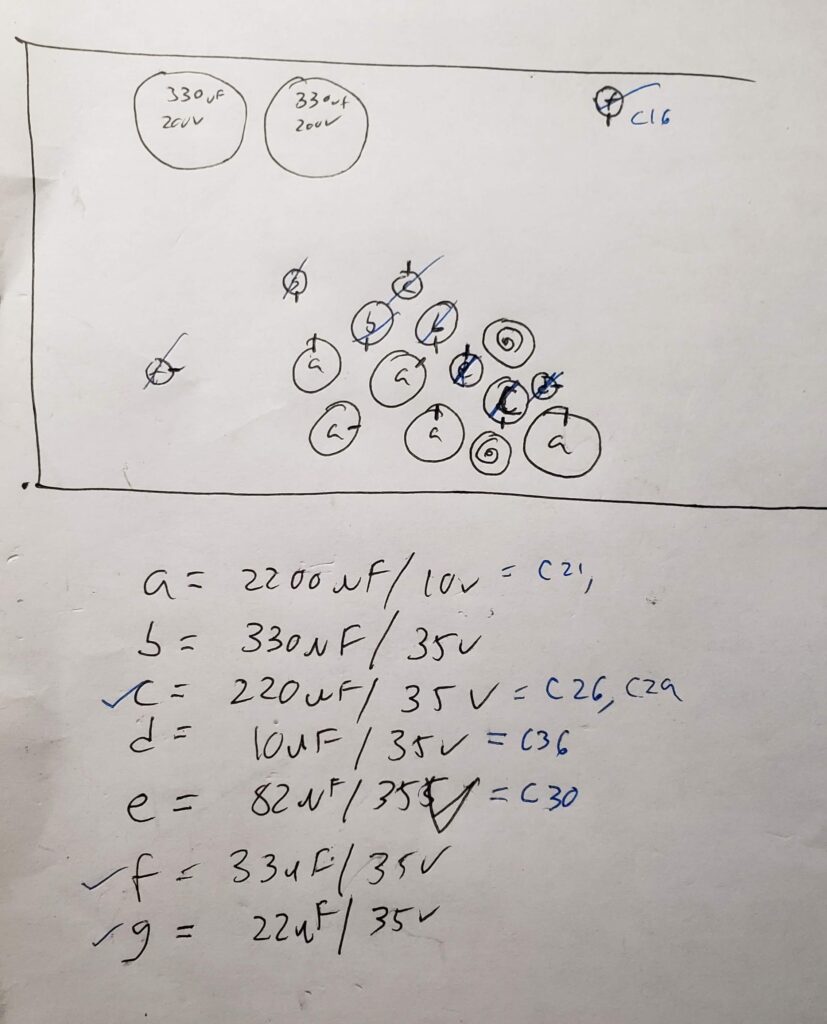 330uF 330uf
200V 200V
f
C16
b
c
b b
a a
a a a
a = 2200uF/10v = C21,
b = 330uF/35V
✓c = 220uF/35V = C26, C29
d = 10uF/35V = C36
e = 82uF/35V = C30
✓f = 33uF/35V
✓g = 22uF/35V